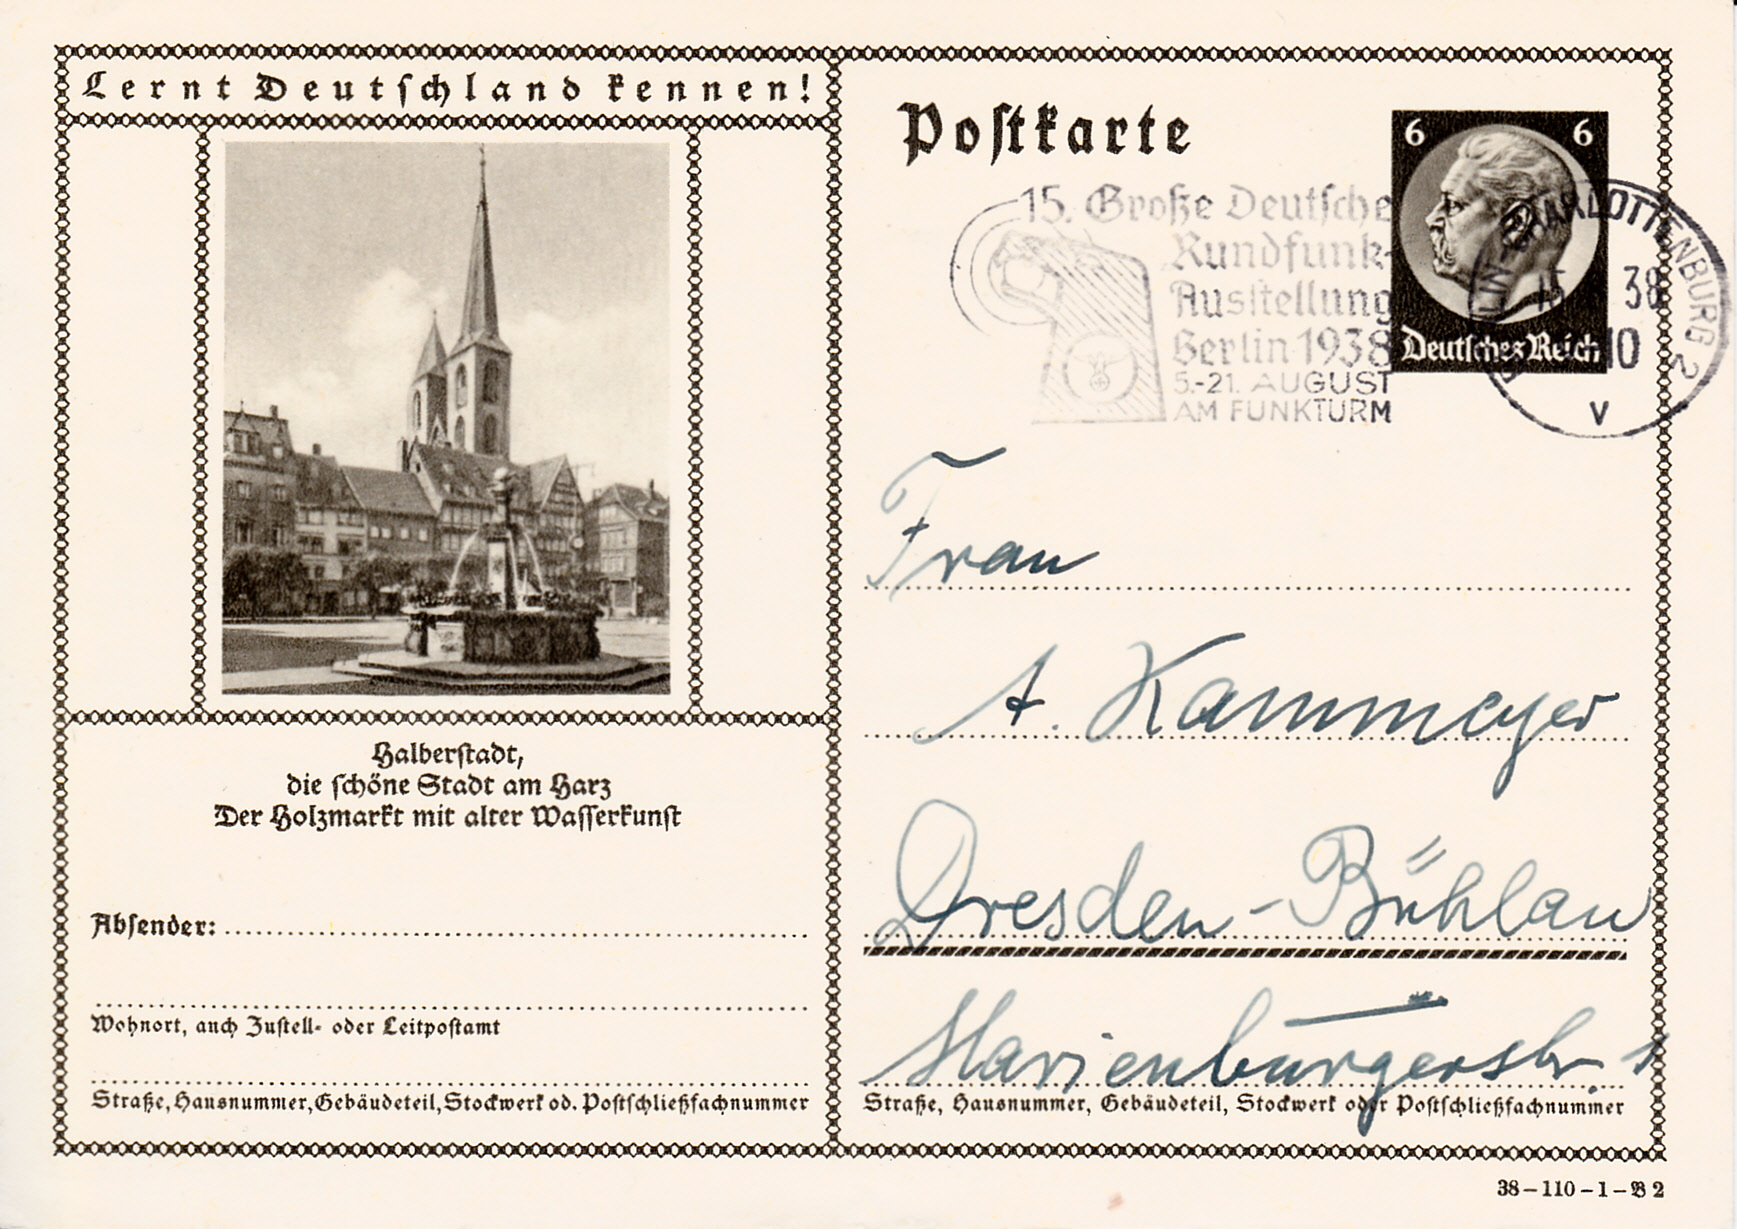 Lernt Deutschland kennen!
Halberstadt,
die schöne Stadt am Harz
Der Holzmarkt mit alter Wasserkunst
Absender:
Wohnort, auch Zustell- oder Leitpostamt
Straße, Hausnummer, Gebäudeteil, Stockwerk od. Postschließfachnummer
Postkarte
6 6
Deutsches Reich
15. Große Deutsche
Rundfunk-
Ausstellung
Berlin 1938
5.-21. AUGUST
AM FUNKTURM
BERLIN-CHARLOTTENBURG 2
15 38
10
v
Frau
A. Kammeyer
Dresden-Bühlau
Marienburgerstr. 1
Straße, Hausnummer, Gebäudeteil, Stockwerk oder Postschließfachnummer
38-110-1-B 2